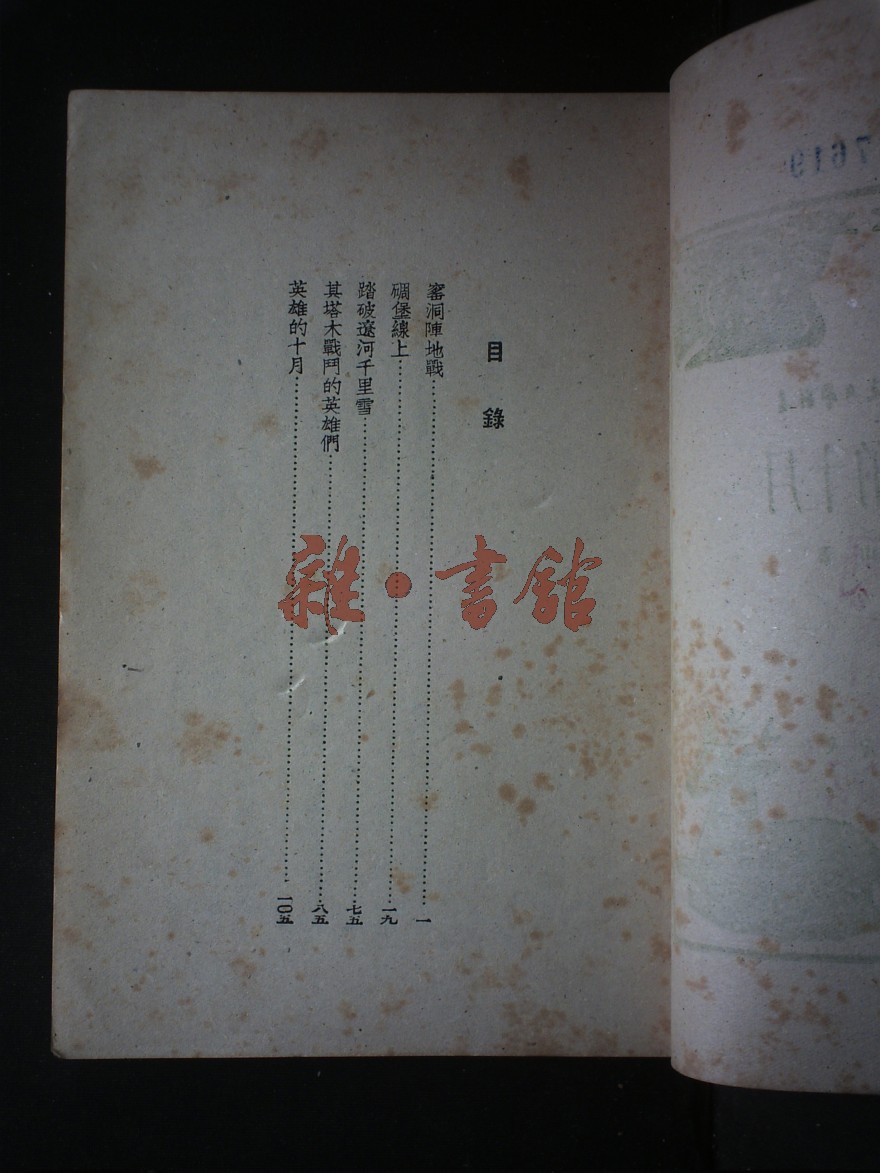 目錄
窰洞陣地戰……一
碉堡線上……一九
踏破遼河千里雪……七五
其塔木戰鬥的英雄們……八五
英雄的十月……一〇五
一
雜·書館
7619
的十月